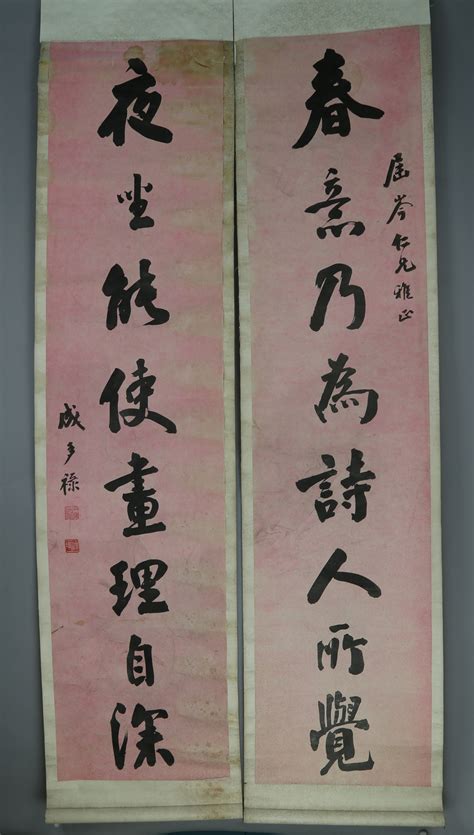 春意乃為詩人所覺
屈岑仁兄雅正
夜坐能使畫理自深
成多祿